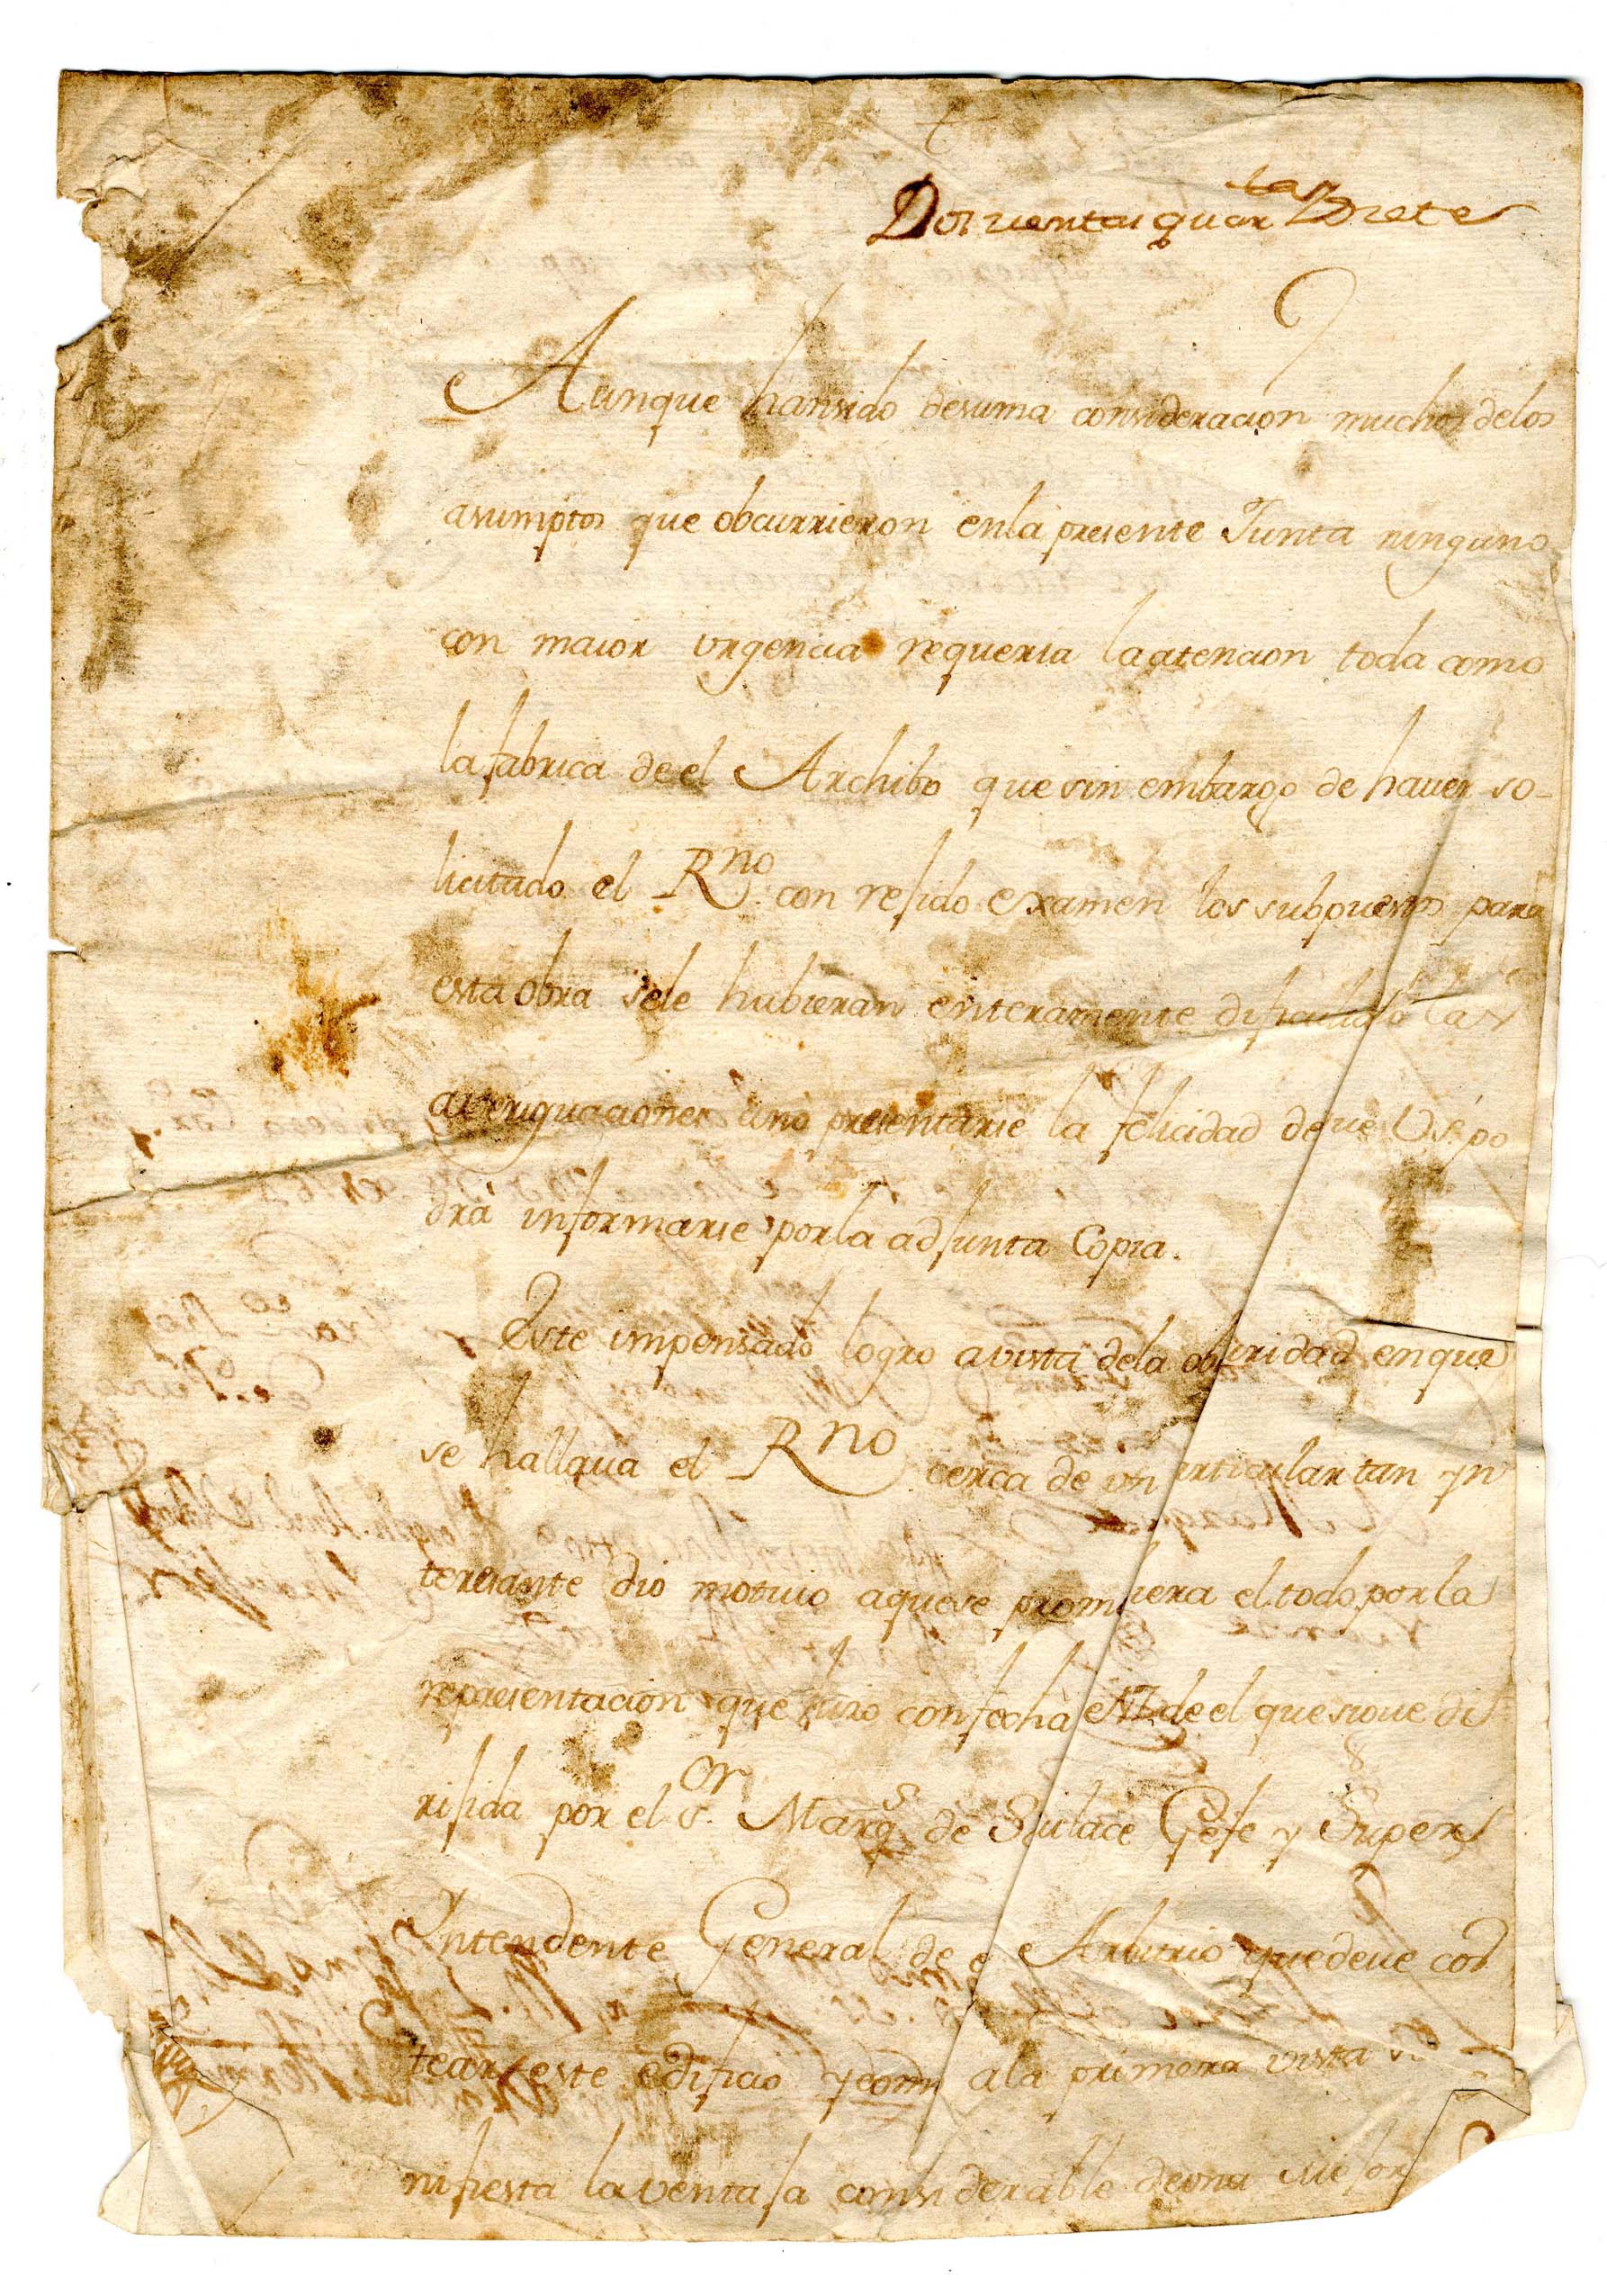 Doszientas quarta y Siete
Aunque hansido desuma consideracion muchos delos
asumptos que obcurrieron enla presente Junta ninguno
con maior urgencia requeria laatencion toda como
la fabrica de el Archibo que sin embargo de haver so-
licitado el Rno. con refido examen los subpuestos para
esta obra sele hubieran enteramente dificultado las
averiguaciones àno presentarse la felicidad deque Us.ª po
drá informarse por la adjunta Copia.
Este impensado logro avista dela obscuridad en que
se hallava el Rno. cerca de un articular tan yn
teresante dio motivo aquese prom viera el todo por la
representacion que hizo confecha de el que sigue di
rijida por el s.or Marq.s de Squilace Gefe y Super
Yntendente General de e Arbitrio que deve cos
tear este edificio y com ala primera vista
nifiesta la ventaja considerable deuna